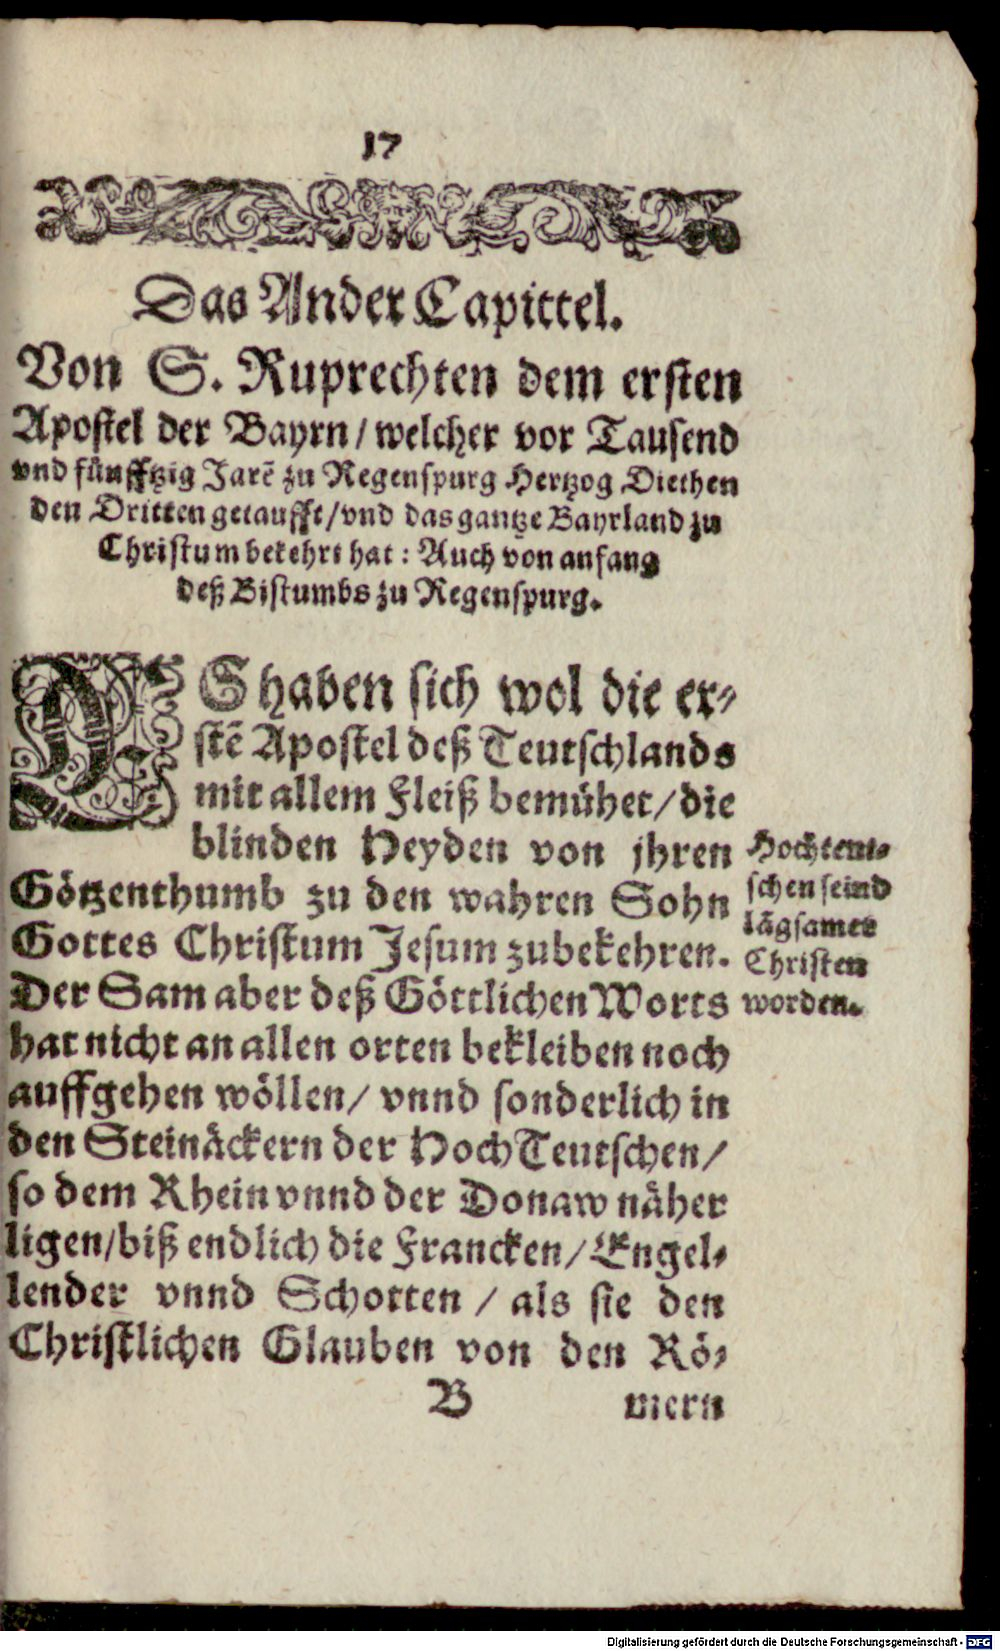 17
Das Ander Capittel.
Von S. Ruprechten dem ersten
Apostel der Bayrn / welcher vor Tausend
vnd fünfftzig Jarē zu Regenspurg Hertzog Diethen
den Dritten getaufft / vnd das gantze Bayrland zu
Christum bekehrt hat : Auch von anfang
deß Bistumbs zu Regenspurg.
ES haben sich wol die er-
stē Apostel deß Teutschlands
mit allem Fleiß bemühet / die
blinden Heyden von jhren
Götzenthumb zu den wahren Sohn
Gottes Christum Jesum zubekehren.
Der Sam aber deß Göttlichen Worts
hat nicht an allen orten bekleiben noch
auffgehen wöllen / vnnd sonderlich in
den Steinäckern der HochTeutschen /
so dem Rhein vnnd der Donaw näher
ligen / biß endlich die Francken / Engel-
lender vnnd Schotten / als sie den
Christlichen Glauben von den Rö-
B mern
Hochteut-
schen seind
lāgsamer
Christen
worden.
Digitalisierung gefördert durch die Deutsche Forschungsgemeinschaft - DFG